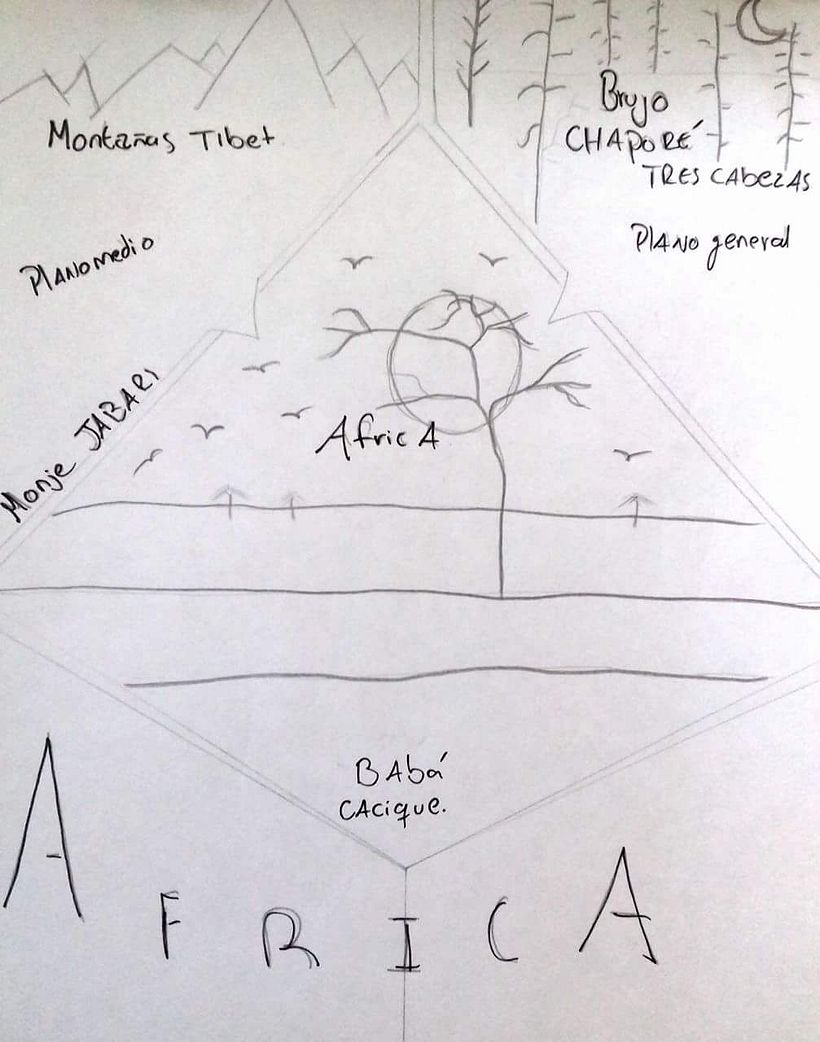 Montañas Tibet
Brujo
CHAPORÉ
TRES CAbezAS
PlANo medio
PlANo general
Monje JABARI
AfricA
BAbá
CAcique.
AFRICA